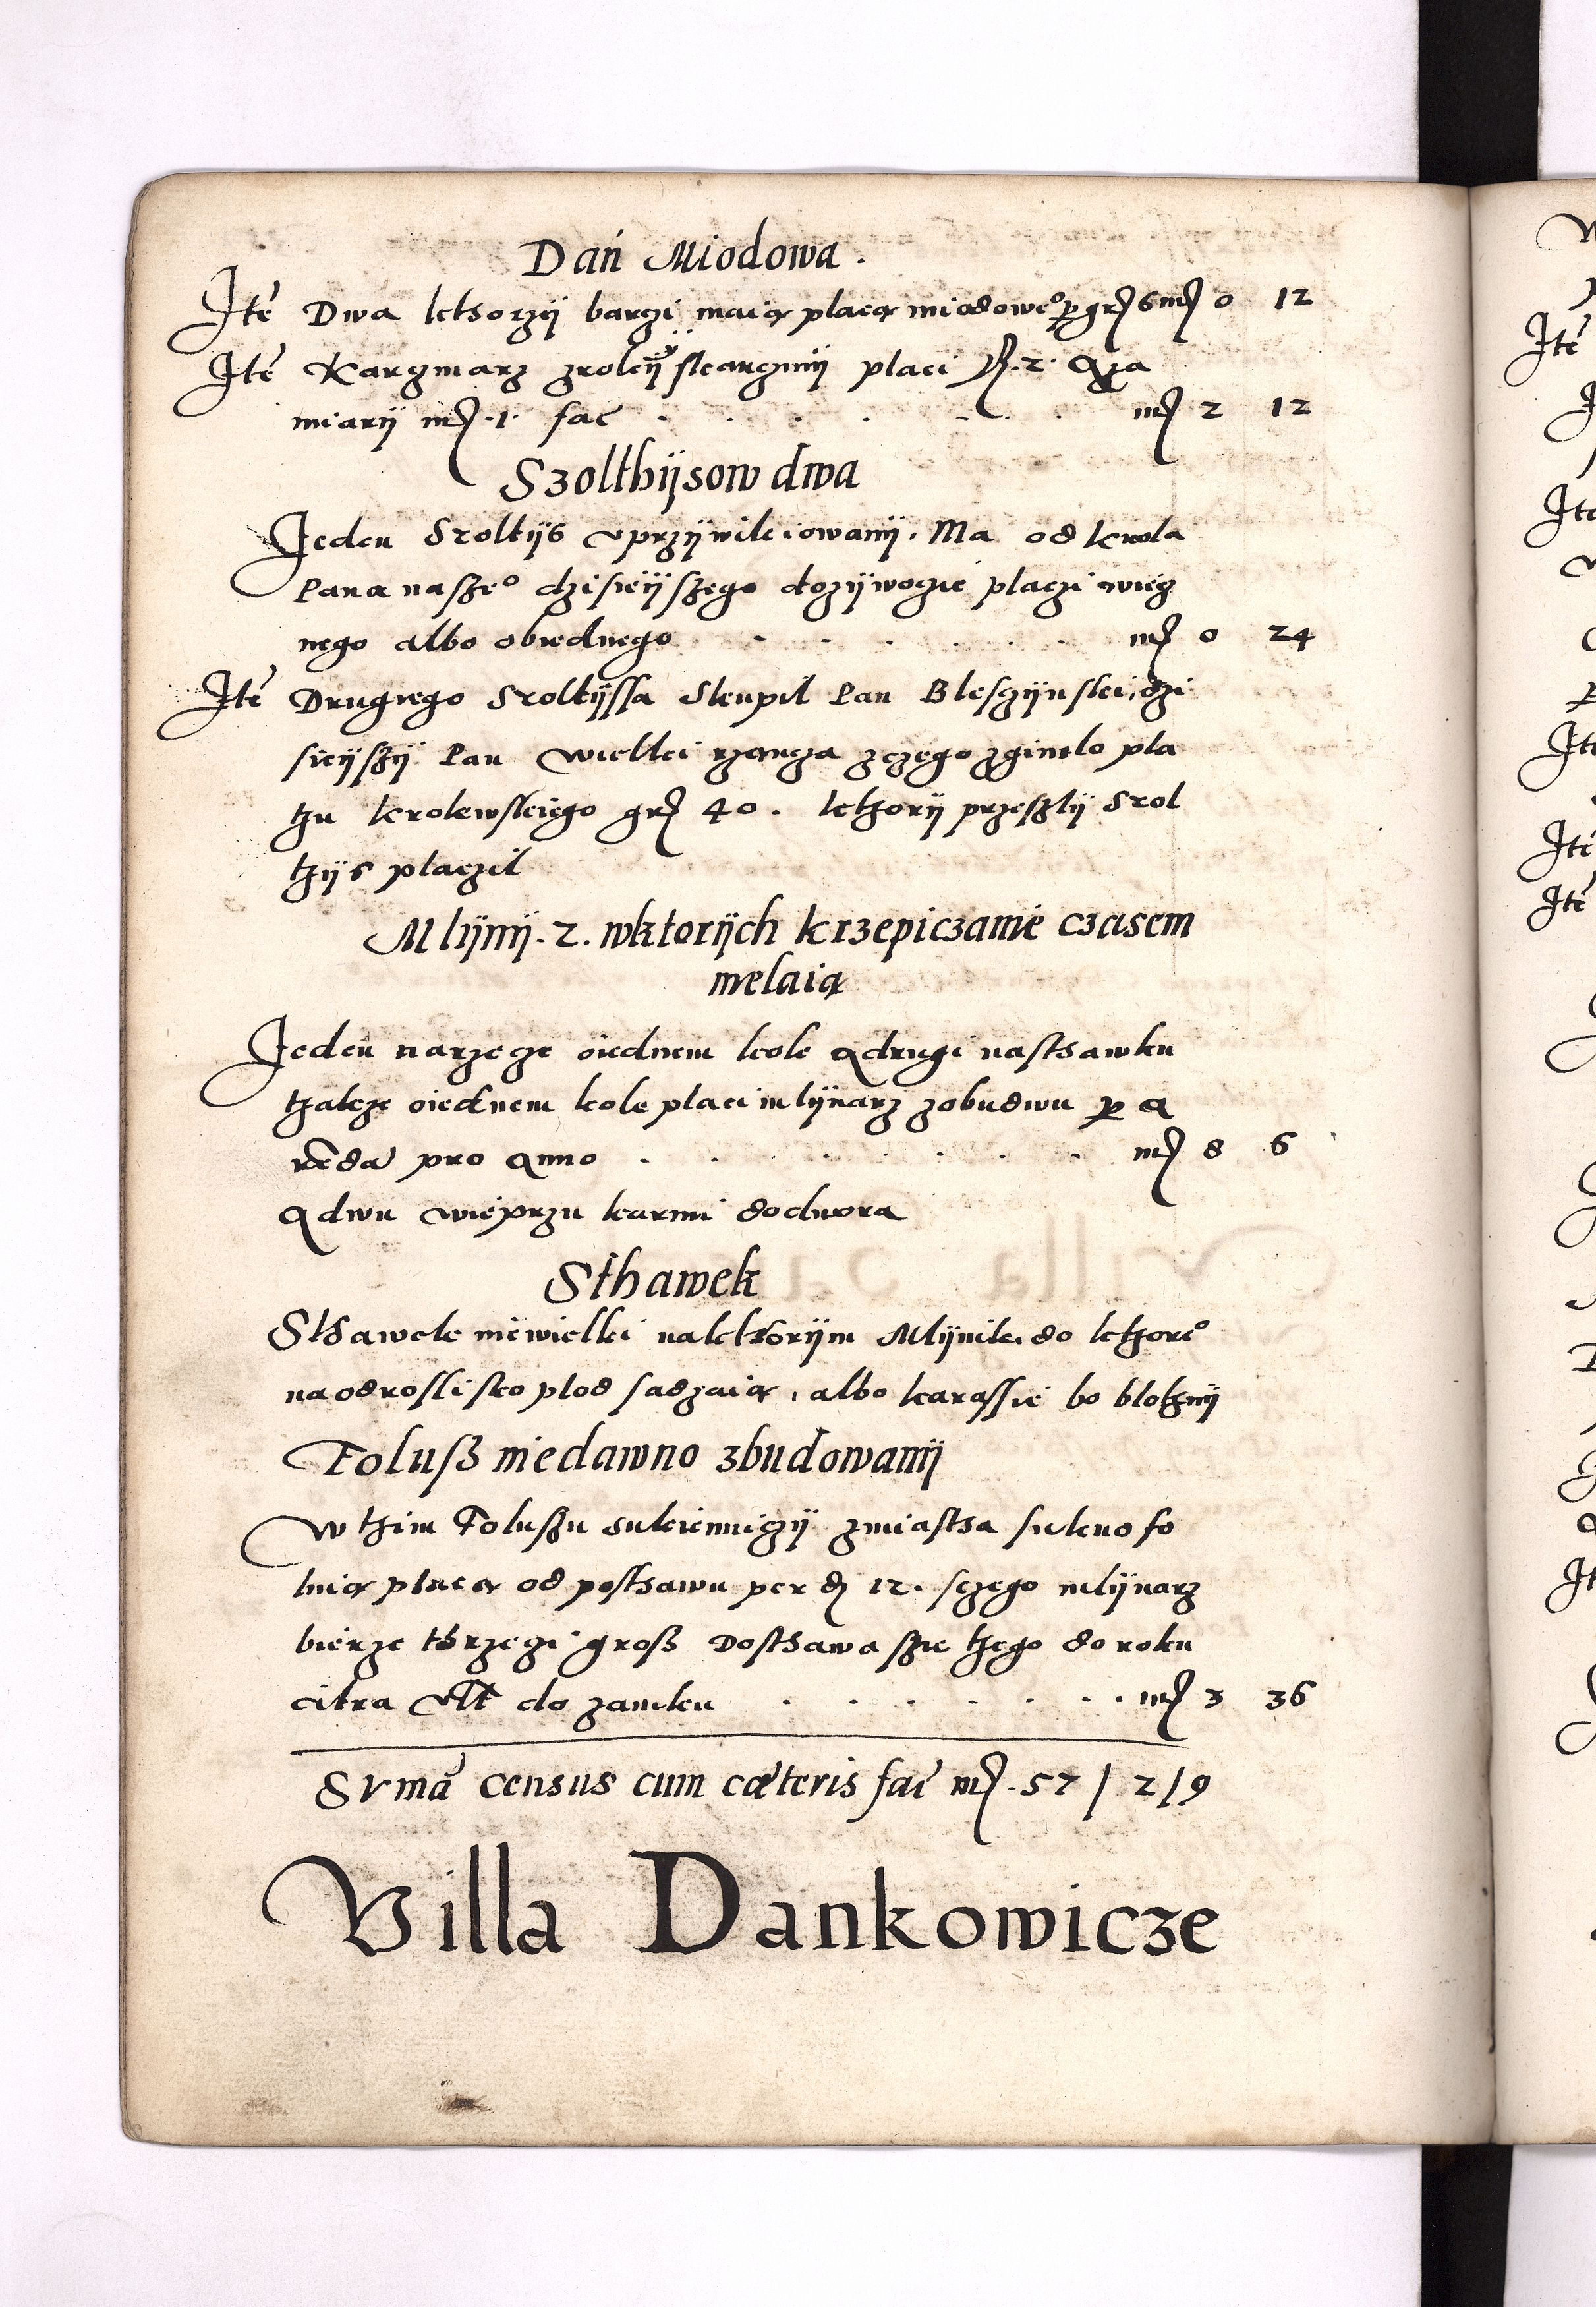 Dań Miodowa.
Ite Dwa kthorzÿ barczi maią placą miodoweo per gr 6 mr 0 12
Ite Karczmarz zroleÿ ÿ karczmÿ placi fl. 2. Aza
miarÿ mr. 1. fac . . . . . . mr 2 12
Szolthÿsow dwa
Jeden Szoltÿs vprzÿwileiowanÿ. Ma od krola
Pana naszeo dzisieÿszego dozÿwoczie placzi wiecz
nego albo obiednego . . . . . mr 0 24
Ite Drugiego Szoltÿssa Skupil Pan Bleszÿnski, dzi
sieÿszÿ Pan wielki rzancza zczego zginelo pla
tzu krolewskiego gr 40. ktzorÿ przeszlÿ Szol
tzÿs placzil
Mlÿnÿ. 2. wktorÿch krzepiczanie czasem
melaią
Jeden narzecze oiednem kole Adrugi nasthawku
tzakze oiednem kole placi mlÿnarz zobudwu per a
renda pro Anno . . . . . . mr 8 6
Adwu wieprzu karmi dodwora
Sthawek
Sthawek niewielki naktorÿm Mlÿnik do ktzoreo
naodroslisko plod sadzaią, albo karassie bo blotznÿ
Folusz niedawno zbudowanÿ
W tzim Foluszu sukienniczÿ zmiastha sukno fo
luią placą od posthawu per d 12. sczego mlÿnarz
bierze thrzeczi grosz Dosthawa szie tzego do roku
citra vlt do zamku . . . . . . mr 3 36
Svma Census cum cæteris fac mr. 57 / 2 / 9
Villa Dankowicze